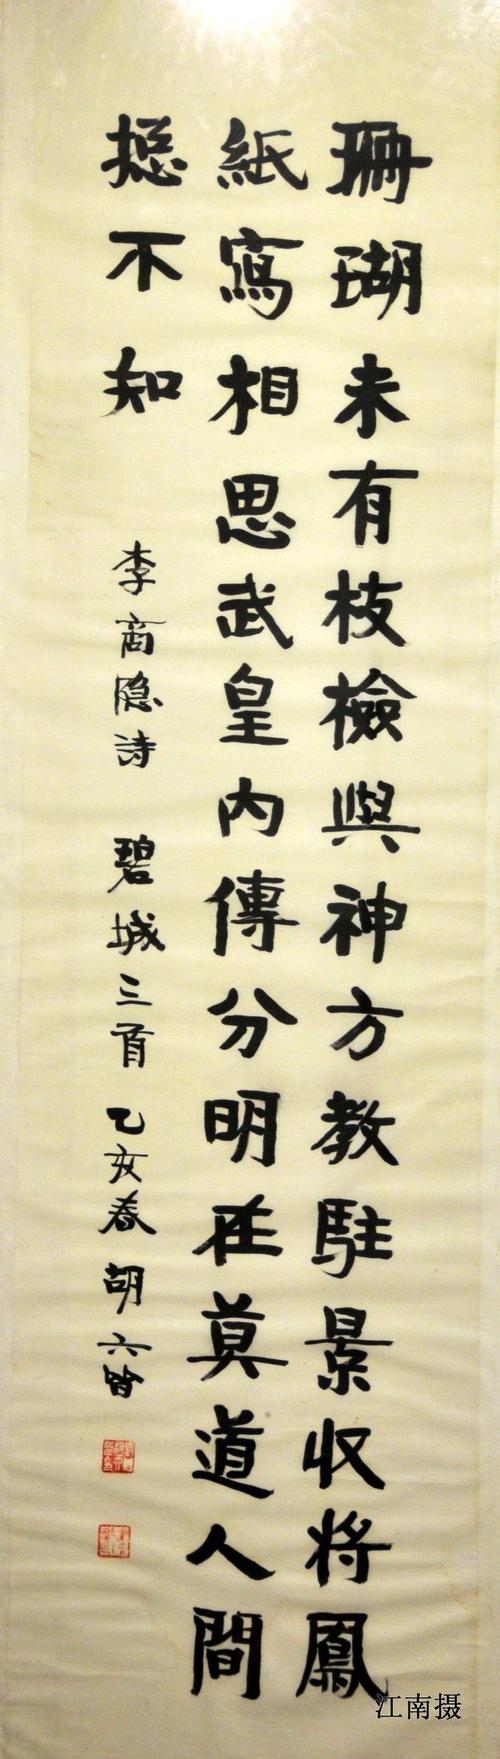 珊瑚未有枝檢與神方教駐景收將鳳
紙寫相思武皇內傳分明在莫道人間
揔不知
李商隐詩 碧城三首 乙亥春 胡六皆
江南摄